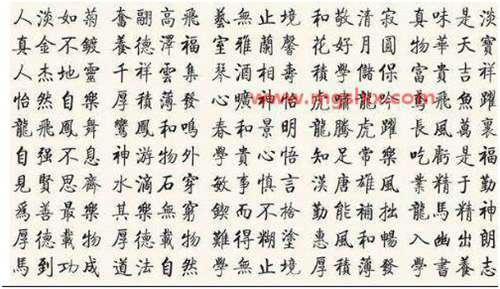 人淡如菊 奮翮高飛 藝無止境 和敬清寂 真味是淡
真金不鍍 養德澤福 室雅蘭馨 花好月圓 物華天寶
人杰地靈 千祥雲集 琴 酒相壽 學儲 富貴吉祥
怡然自樂 厚積薄發 心曠神怡 虎 龍 飛魚躍
龍飛鳳舞 鸞鳳和鳴 春和景明 龍騰虎躍 長風萬裏
自强不息 神游物外 學貴心悟 知足常樂 吃虧是福
見賢思齊 水滴石穿 敏事慎言 漢唐雄風 業精于勤
爲善最樂 其樂無窮 鍥而不捨 勤能補拙 龍馬精神
厚德載物 難得糊塗 惠風和暢 入幽出朗
馬到功成 道法自然 學無止境 厚積薄發 學書養志